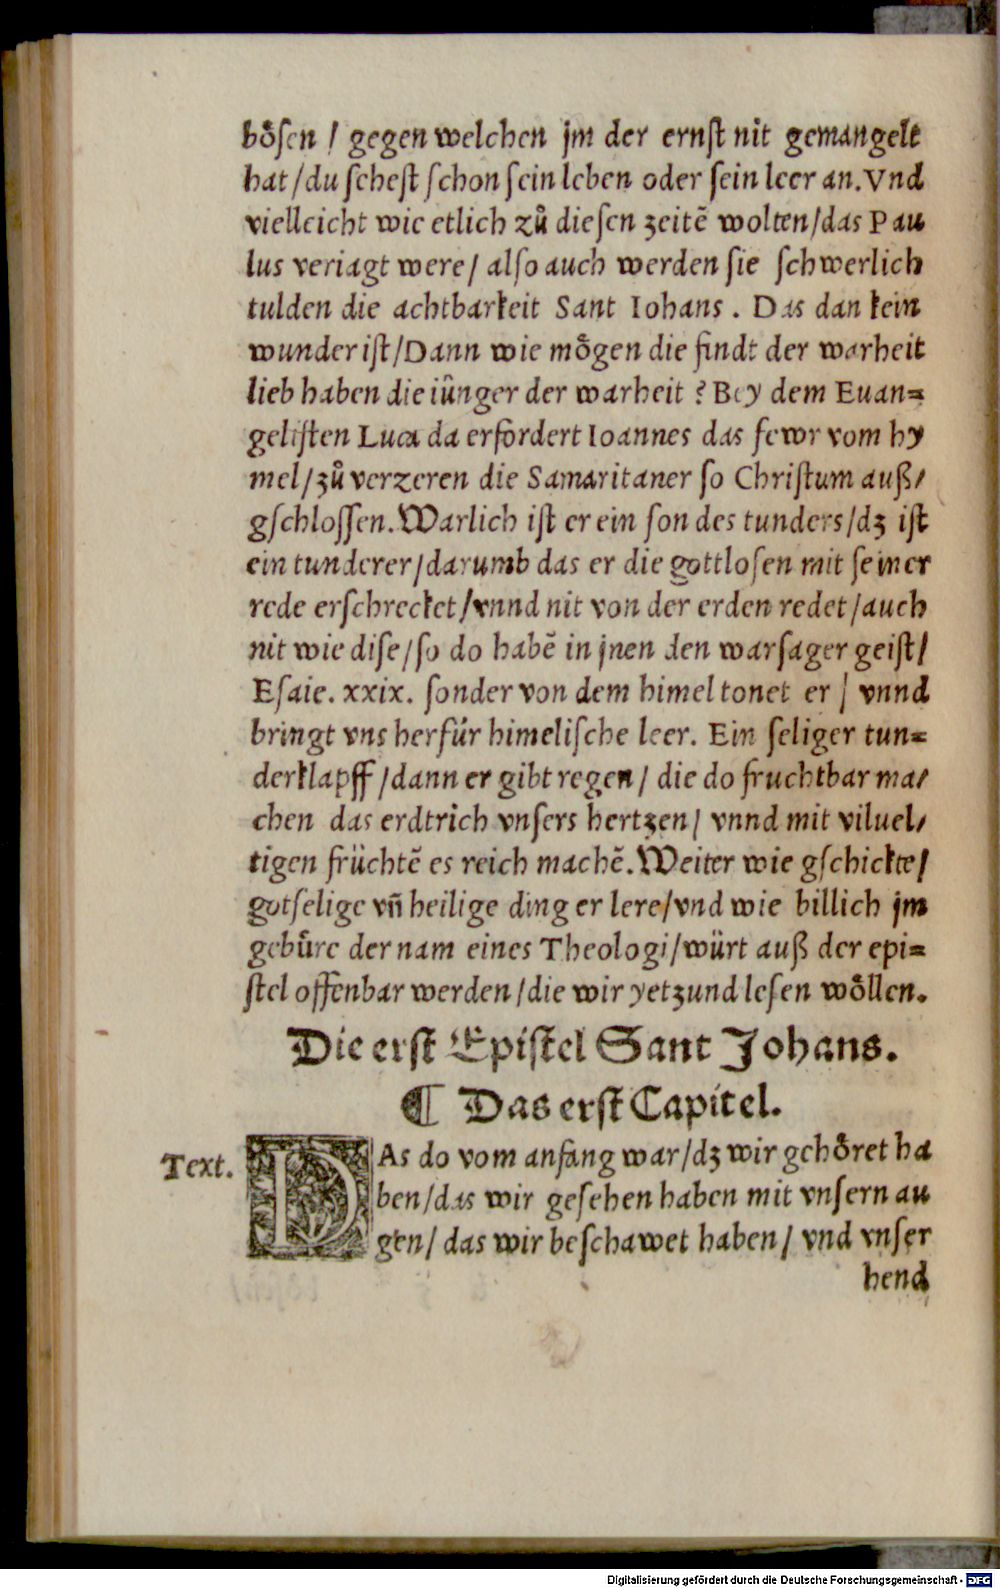 boͤſen / gegen welchen jm der ernſt nit gemangelt
hat / du ſeheſt ſchon ſein leben oder ſein leer an. Vnd
vielleicht wie etlich zuͦ dieſen zeitẽ wolten / das Pau
lus veriagt were / alſo auch werden ſie ſchwerlich
tulden die achtbarkeit Sant Iohans . Das dan kein
wunder iſt / Dann wie moͤgen die findt der warheit
lieb haben die iuͤnger der warheit ? Bey dem Euan⸗
geliſten Luca da erfordert Ioannes das fewr vom hy
mel / zuͦ verzeren die Samaritaner ſo Chriſtum auß/
gſchloſſen. Warlich iſt er ein ſon des tunders / dz iſt
ein tunderer / darumb das er die gottloſen mit ſeiner
rede erſchrecket / vnnd nit von der erden redet / auch
nit wie diſe / ſo do habẽ in jnen den warſager geiſt /
Eſaie. xxix. ſonder von dem himel tonet er / vnnd
bringt vns herfür himeliſche leer. Ein ſeliger tun⸗
derklapff / dann er gibt regen / die do fruchtbar ma/
chen das erdtrich vnſers hertzen / vnnd mit viluel/
tigen früchtẽ es reich machẽ. Weiter wie gſchickte /
gotſelige vñ heilige ding er lere / vnd wie billich jm
gebuͤre der nam eines Theologi / würt auß der epi⸗
ſtel offenbar werden / die wir yetzund leſen woͤllen.
Die erſt Epiſtel Sant Johans.
¶ Das erſt Capitel.
Text.
DAs do vom anfang war / dz wir gehoͤret ha
ben / das wir geſehen haben mit vnſern au
gen / das wir beſchawet haben / vnd vnſer
hend
Digitalisierung gefördert durch die Deutsche Forschungsgemeinschaft - DFG